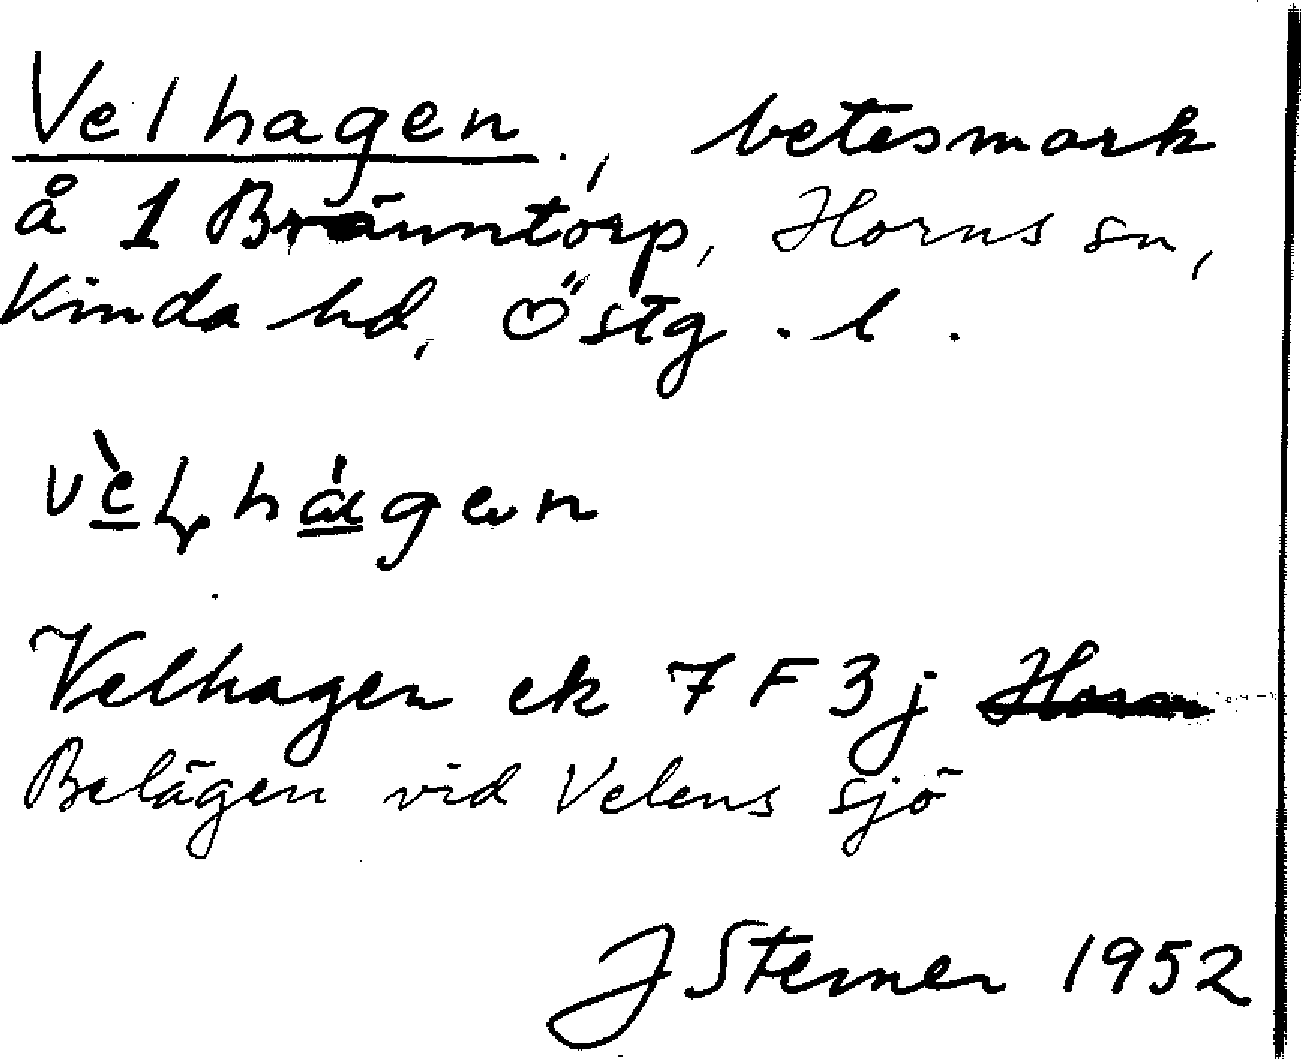 Velhagen, betesmark
å 1 Bränntorp, Horns sn,
Kinda hd, Östg. l.
vèl hágen
Velhagen ek 7 F 3 j
Belägen vid Velens sjö
J Sterner 1952